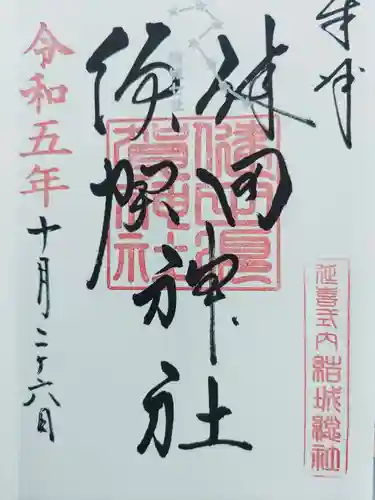 奉拝
健田神社
須賀神社
健田須
賀神社
延喜式内結城總社
令和五年
十月二十六日